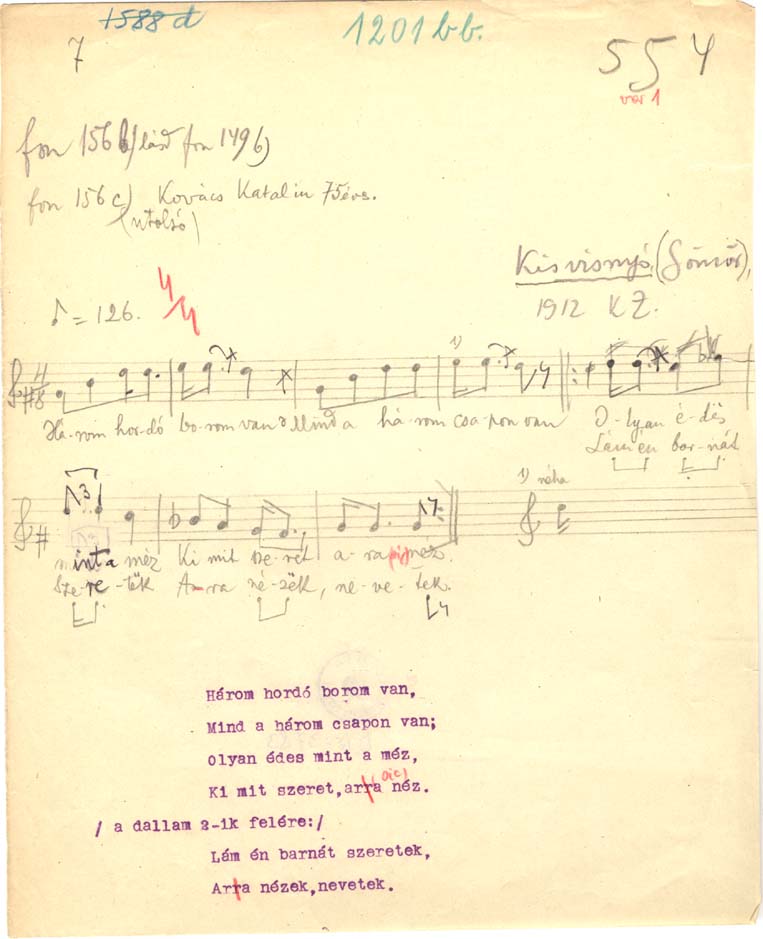 1588 d
1201 b b.
7
554
var 1
fon 156 b) lásd fon 149 b)
fon 156 c) Kovács Katalin 75 éves.
(utolsó)
Kisvisnyó (Gömör),
1912 K Z.
♪ = 126. 4/4
1)
Há-rom hor-dó bo-rom van Mind a há-rom csa-pon van O-lyan é-dës
Lám én bar-nát
3
1) néha
mint a méz Ki mit sze-ret a-ra néz.
Sze-re-tëk A-ra né-zëk, ne-ve-tek.
Három hordó borom van,
Mind a három csapon van;
Olyan édes mint a méz,
(sic)
Ki mit szeret,arra néz.
/ a dallam 2-ik felére:/
Lám én barnát szeretek,
Arra nézek,nevetek.